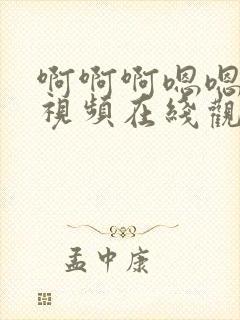 啊啊啊嗯嗯
視頻在綫觀
孟中康